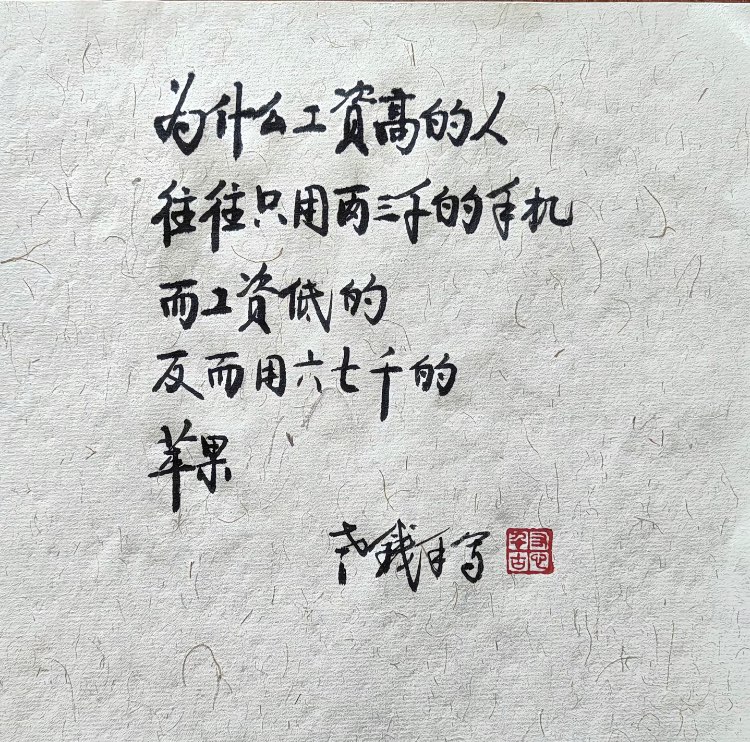 为什么工资高的人
往往只用两三千的手机
而工资低的
反而用六七千的
苹果
老钱手写